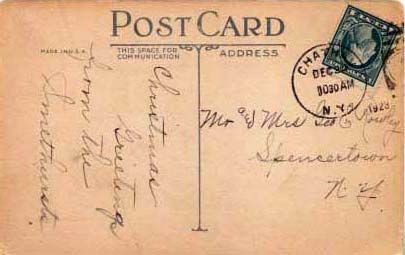 POST CARD
MADE IN U.S.A.
THIS SPACE FOR
COMMUNICATION
ADDRESS
CHAT
DEC
10 30 AM
N.Y.
1923
Christmas
Greetings
from the
Smethursts
Mr and Mrs Geo
Spencertown
N.Y.